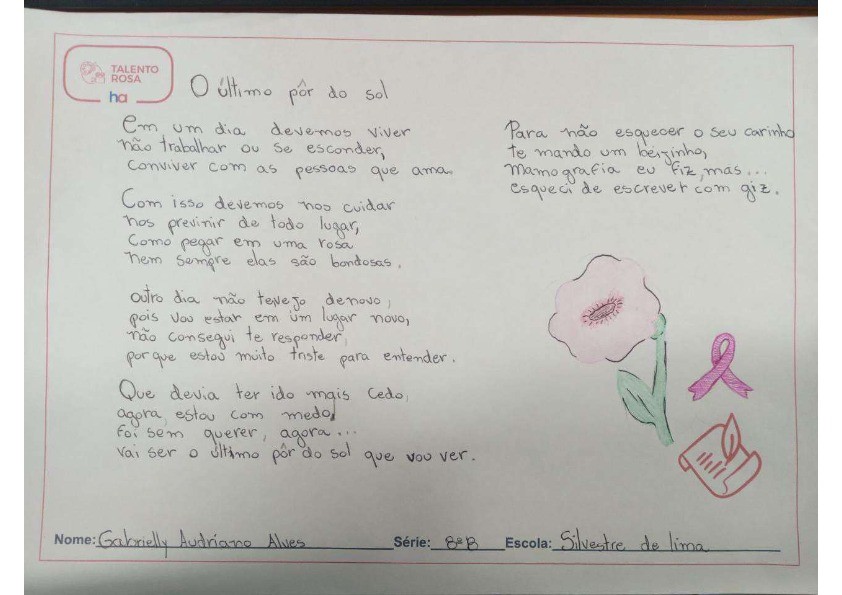 TALENTO
ROSA
ha
O último pôr do sol
Em um dia devemos viver
não trabalhar ou se esconder,
conviver com as pessoas que ama.
Com isso devemos nos cuidar
nos previnir de todo lugar,
Como pegar em uma rosa
nem sempre elas são bondosas.
outro dia não tevejo denovo,
pois vou estar em um lugar novo,
não consegui te responder,
por que estou muito triste para entender.
Que devia ter ido mais cedo,
agora estou com medo,
foi sem querer, agora...
vai ser o último pôr do sol que vou ver.
Para não esquecer o seu carinho
te mando um beizinho,
Mamografia eu fiz, mas...
esqueci de escrever com giz.
Nome: Gabrielly Audriano Alves Série: 8ºB Escola: Silvestre de lima